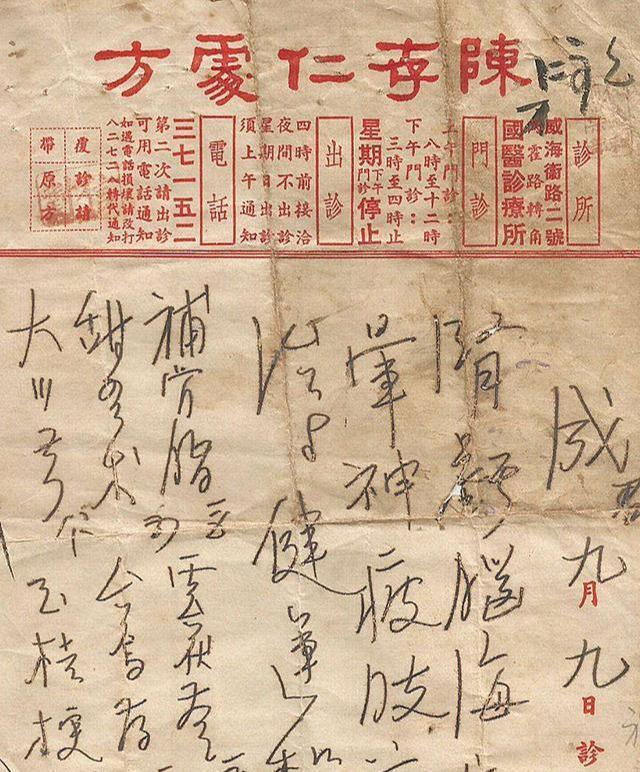 陳存仁處方
診所
威海衛路二號
霍路轉角
國醫診療所
門診
上午門診：
八時至十二時
下午門診：
三時至四時止
星期下午門診停止
出診
四時前接洽
夜間不出診
星期日出診
須上午通知
電話
三七一五二
第二次請出診
可用電話通知
如遇電話損壞請改打
八二七二八轉代通知
覆診請
帶原方
成
九月九日診
腎虧腦海
暈神疲肢
治以健運
補骨脂 雲茯苓
甜冬术
大川芎 玉桔梗